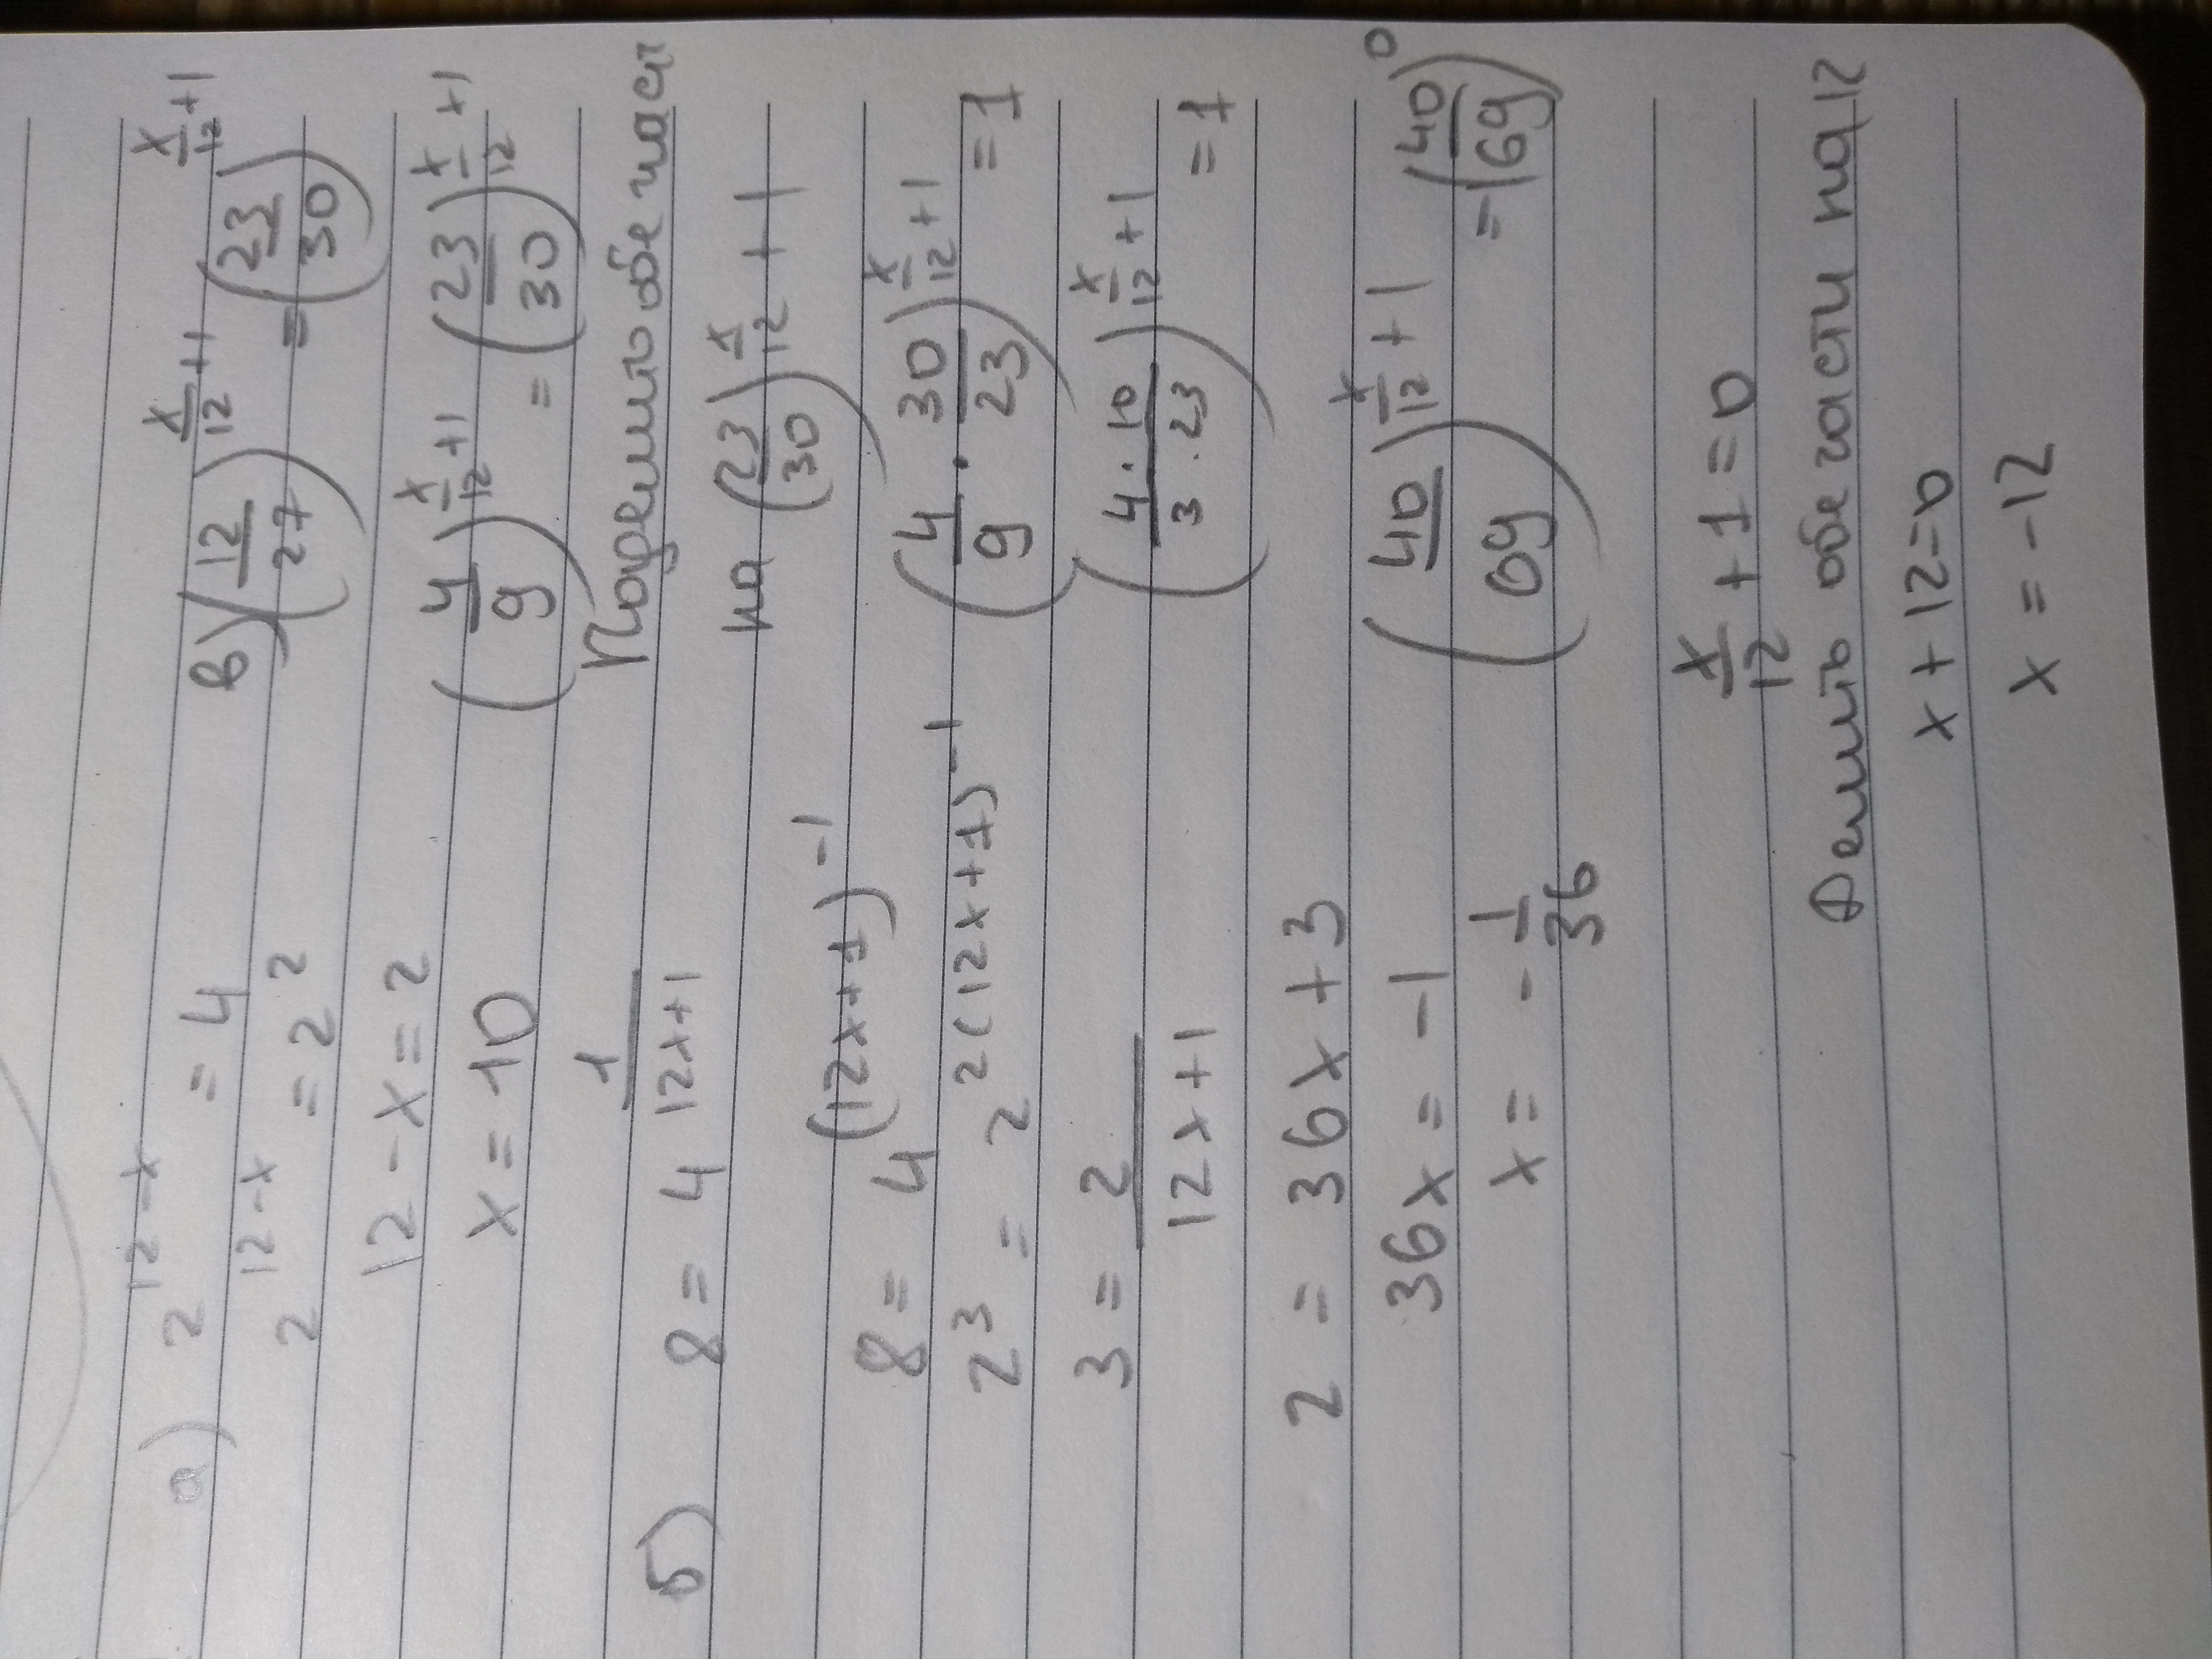 а) 2^(12-x) = 4
2^(12-x) = 2^2
12 - x = 2
x = 10
б) 8 = 4^(1/(12x+1))
8 = 4^((12x+1)^-1)
2^3 = 2^(2(12x+1)^-1)
3 = 2/(12x+1)
2 = 36x + 3
36x = -1
x = -1/36
в) (12/27)^(x/12+1) = (23/30)^(x/12+1)
(4/9)^(x/12+1) = (23/30)^(x/12+1)
Поделить обе част
на (23/30)^(x/12+1)
(4/9 · 30/23)^(x/12+1) = 1
(4·10/3·23)^(x/12+1) = 1
(40/69)^(x/12+1) = (40/69)^0
x/12 + 1 = 0
Делить обе части на 12
x + 12 = 0
x = -12